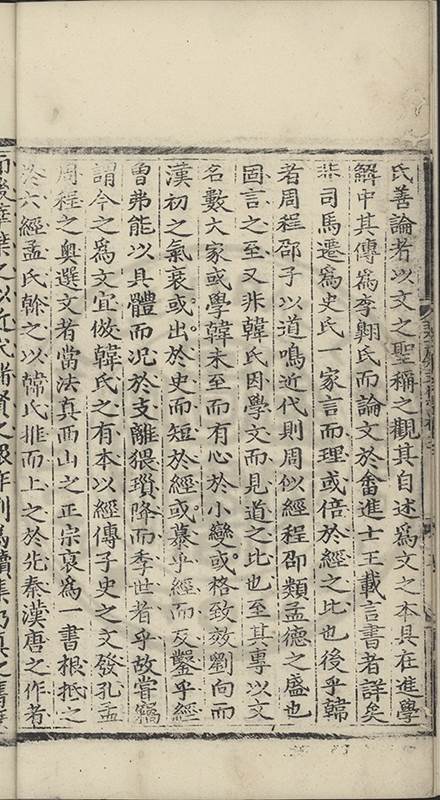 氏善論者以文之聖稱之觀其自述為文之本具在進學
解中其傳為李翶氏而論文於畨進士王載言書者詳矣
非司馬遷為史氏一家言而理或倍於經之比也後乎韓
者周程邵子以道鳴近代則周似經程邵類孟德之盛也
固言之至又非韓氏因學文而見道之比也至其專以文
名數大家或學韓未至而有心於小變或格致效劉向而
漢初之氣衰或出於史而短於經或慕乎經而反鑿乎經
曽弗能以具體而况於支離猥𤨏降而季世者乎故嘗竊
謂今之為文宜倣韓氏之有本以經傳子史之文發孔孟
周程之奥選文者當法真西山之正宗裒為一書根抵之
於六經孟氏榦之以韓氏推而上之於先秦漢唐之作者
之以近代諸賢之